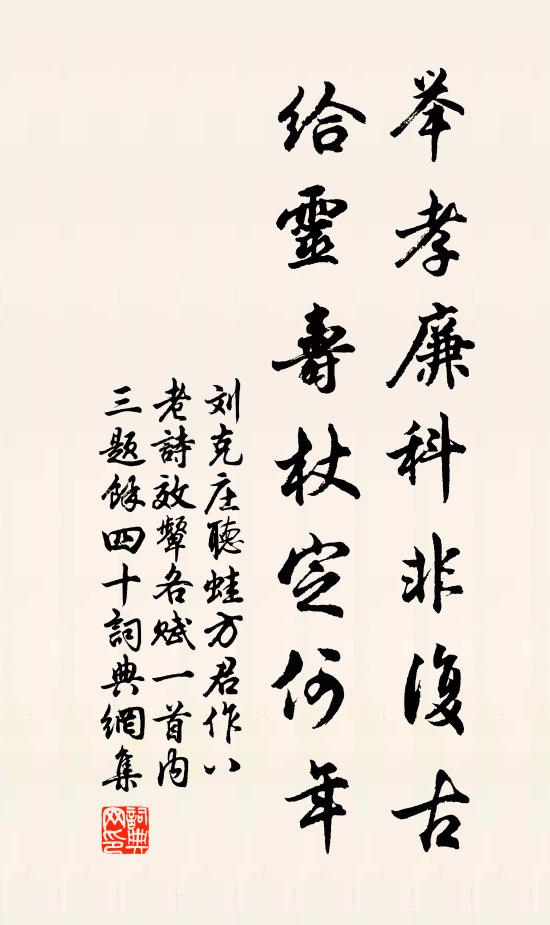 举孝廉科非復古
给靈壽杖定何年
刘克庄聽蛙方君作八
老詩效颦各赋一首内
三题馀四十詞典網集
詞典
网印